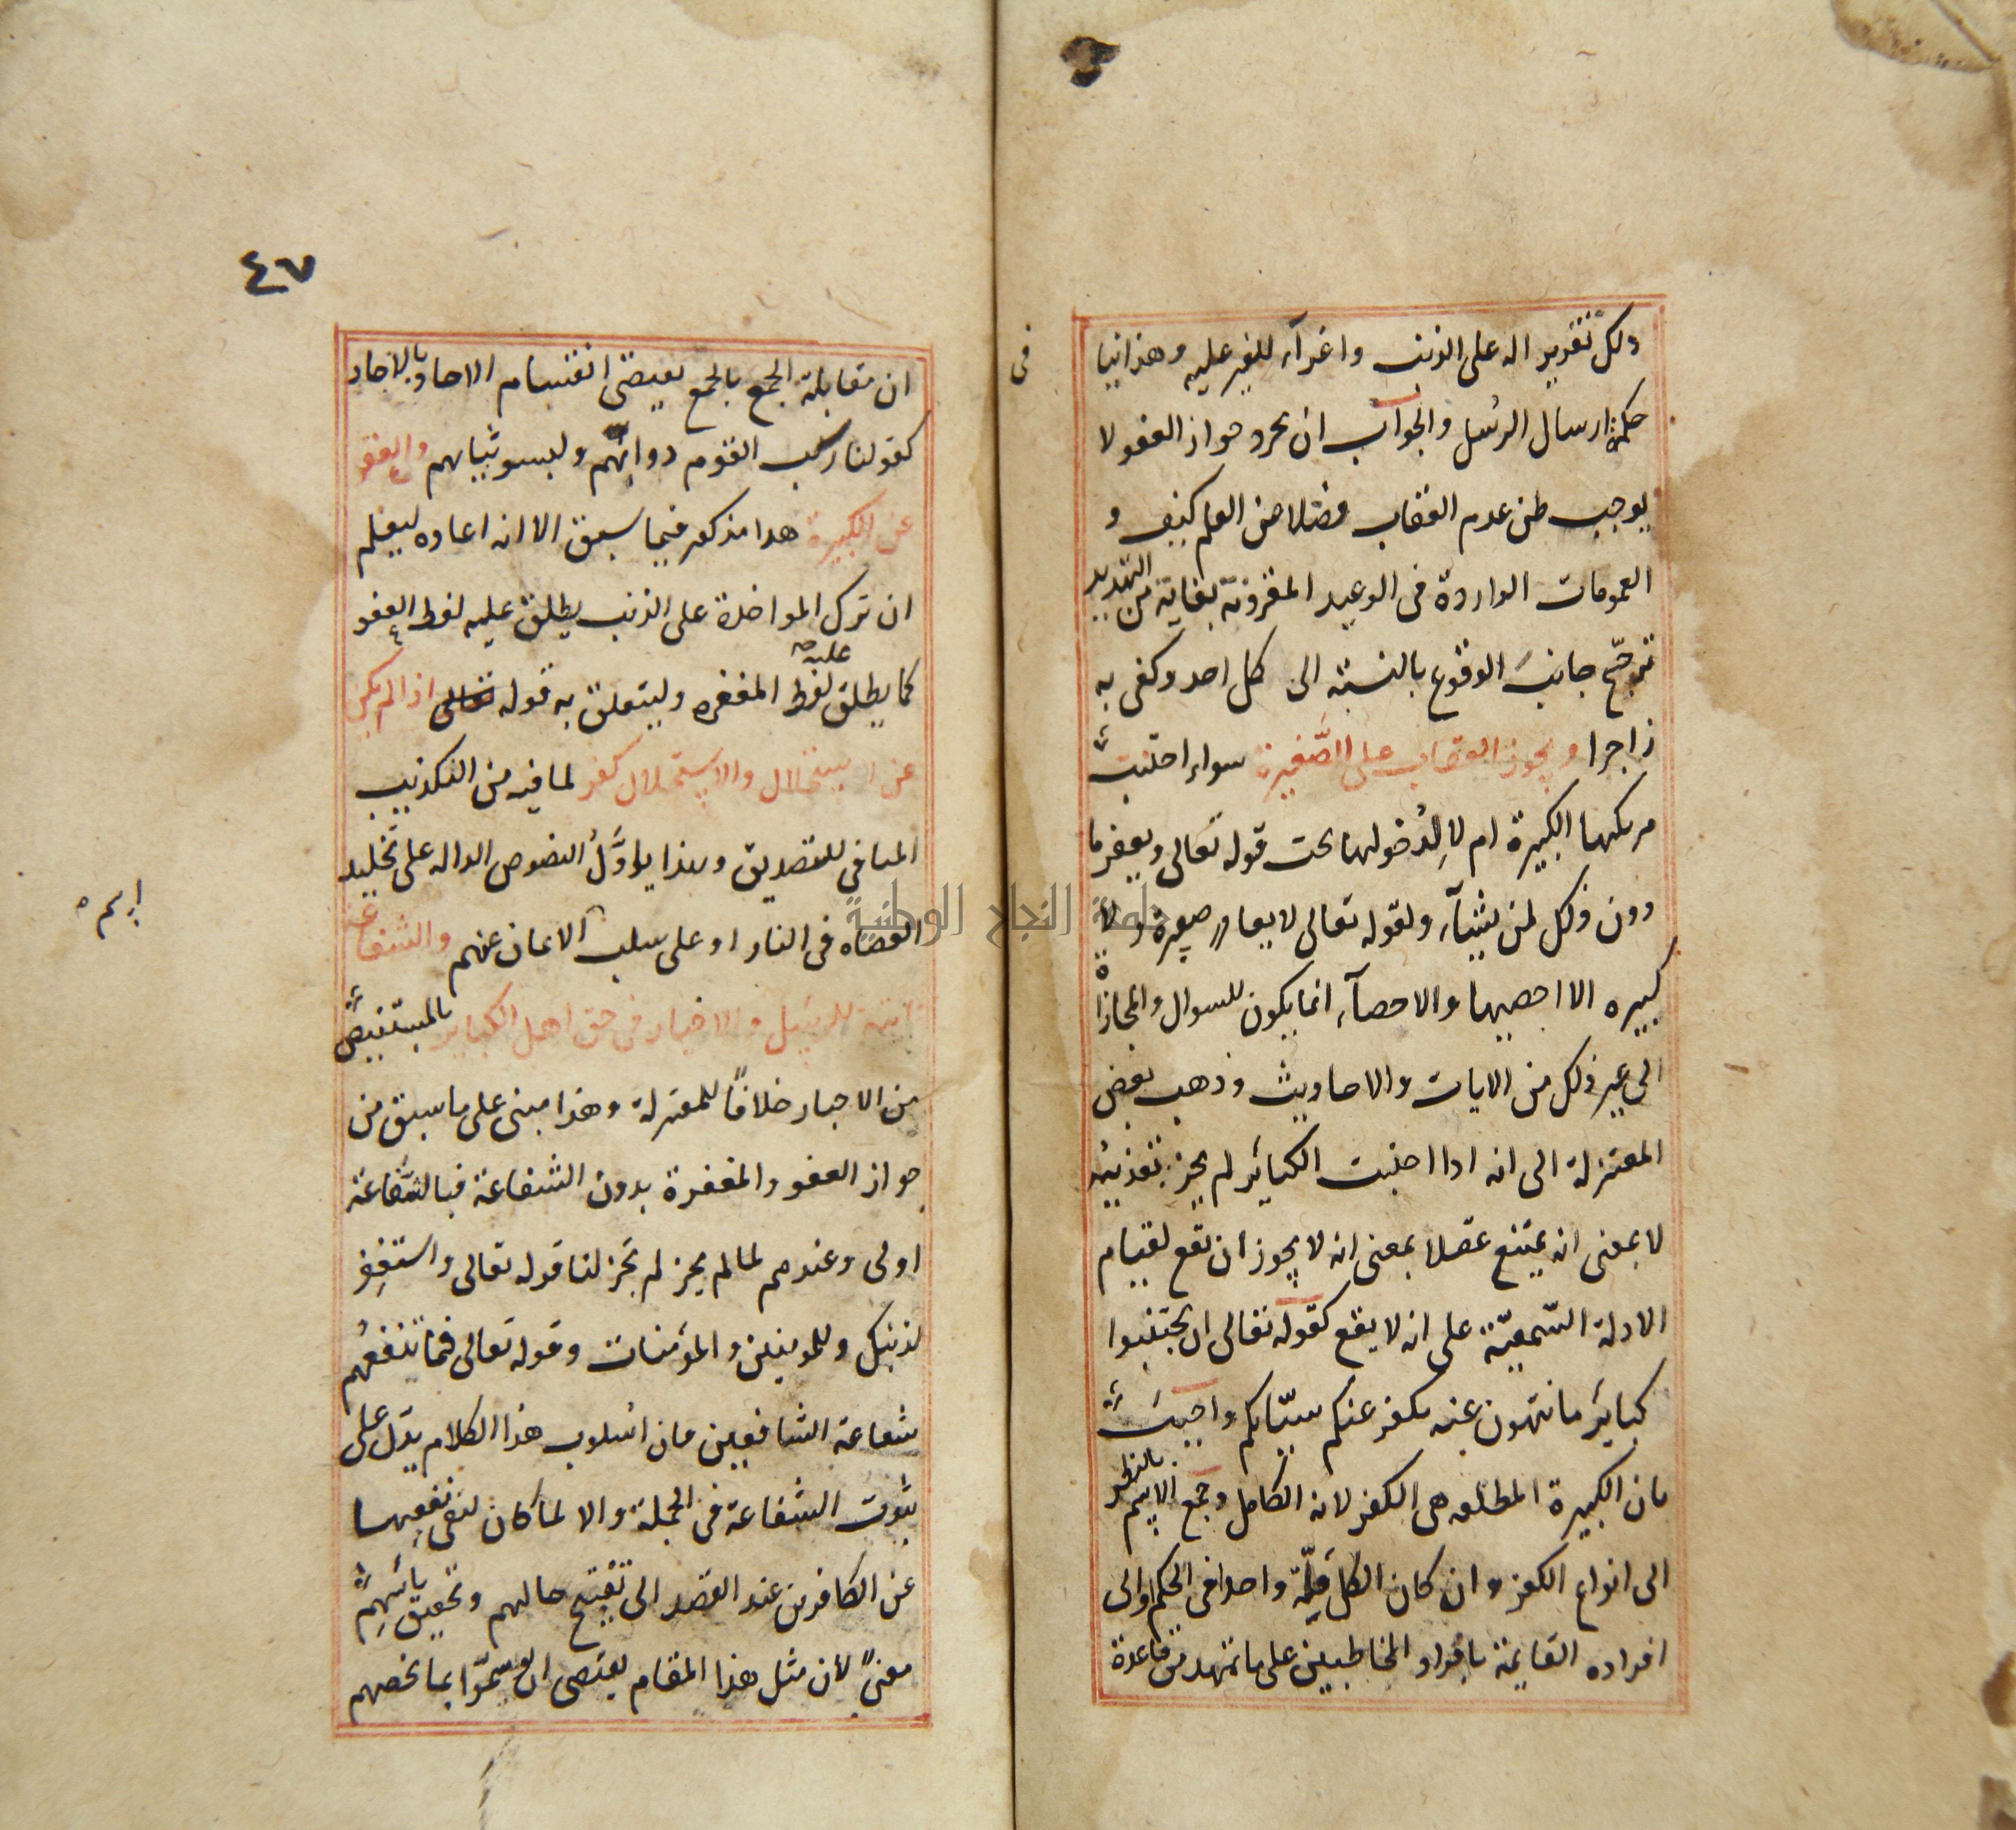 ذلك تقرير اله على الذنب واغرآء للغير عليه وهذا ينا في
حكمة ارسال الرسل والجواب ان مجرد جواز العفو لا
يوجب ظن عدم العقاب فضلا من العلم كيف و
العمومات الواردة فى الوعيد المقرونة بغاية من التهديد
ترجّح جانب الوقوع بالنسبة الى كل احد وكفى به
زاجرا ويجوز العقاب على الصّغيرة سواء اجتنب
مرتكبها الكبيرة ام لا لِدُخولها تحت قوله تعالى ويغفر ما
دون ذلك لمن يشآء ولقوله تعالى لا يغادر صغيرة ولا
كبيره الا احصيها والاحصآء انما يكون للسوال والمجازاة
الى غير ذلك من الايات والاحاديث وذهب بعض
المعتزلة الى انه اذا اجتنب الكبائر لم يجز تعذيبُه
لا بمعنى انه يمتنع عقلا بمعنى انه لا يجوز ان تقع لقيام
الادلة السّمعيّة على انه لا يقع كقوله تعالى ان تجتنبوا
كبائر ما تنهون عنه نكفر عنكم سيّاتكم واجيبَ
بان الكبيرة المطلقه هى الكفر لانه الكامل وجمع الاسم بالنظر
الى انواع الكفر وان كان الكل مِلّة واحدا فى الحكم او الى
افراده القايمة بافراد المخاطبين على ما تمهد من قاعدة
٤٧
ان مقابلة الجمع بالجمع يقتضى انقسام الاحاد بالاحاد
كقولنا ركب القوم دوابّهم ولبسو ثيابهم والعفو
عن الكبيرة هدا مذكور فيما سبق الا انه اعاده ليعلم
ان ترك المواخذة على الذنب يطلق عليه لفظ العفو
كما يطلق عليه لفظ المغفره وليتعلق به قوله تعالى اذا لم يكن
عن الاستحلال والاستحلال كفر لما فيه من التكذيب
المنافى للتصديق وبهذا ياوَّلُ النصوص الداله على تخليد
العصاه فى النار او على سلب الايمان عنهم والشفاعة
ثابتة للرسل والاخيار فى حق اهل الكبائر بالمستفيض
من الاخبار خلافًا للمعتزلة وهذا مبنى على ما سبق من
جواز العفو والمغفرة بدون الشفاعة فبالشَّفاعة
اولى وعندهم لما لم يجز لم تجز لنا قوله تعالى واستغفِر
لذنبك وللمومنين والمؤمنات وقوله تعالى فما تنفعُهم
شفاعة الشافعين فان اسلوب هذا الكلام يدّل على
ثبوت الشفاعة فى الجملة والا لما كان لنفى نفعِها
عن الكافرين عند القصد الى تقبيح حالهم وتحقيق باسِهم
معنىً لأن مثل هذا المقام يقتضى ان يوسمّوا بما يخصهم
جامعة النجاح الوطنية